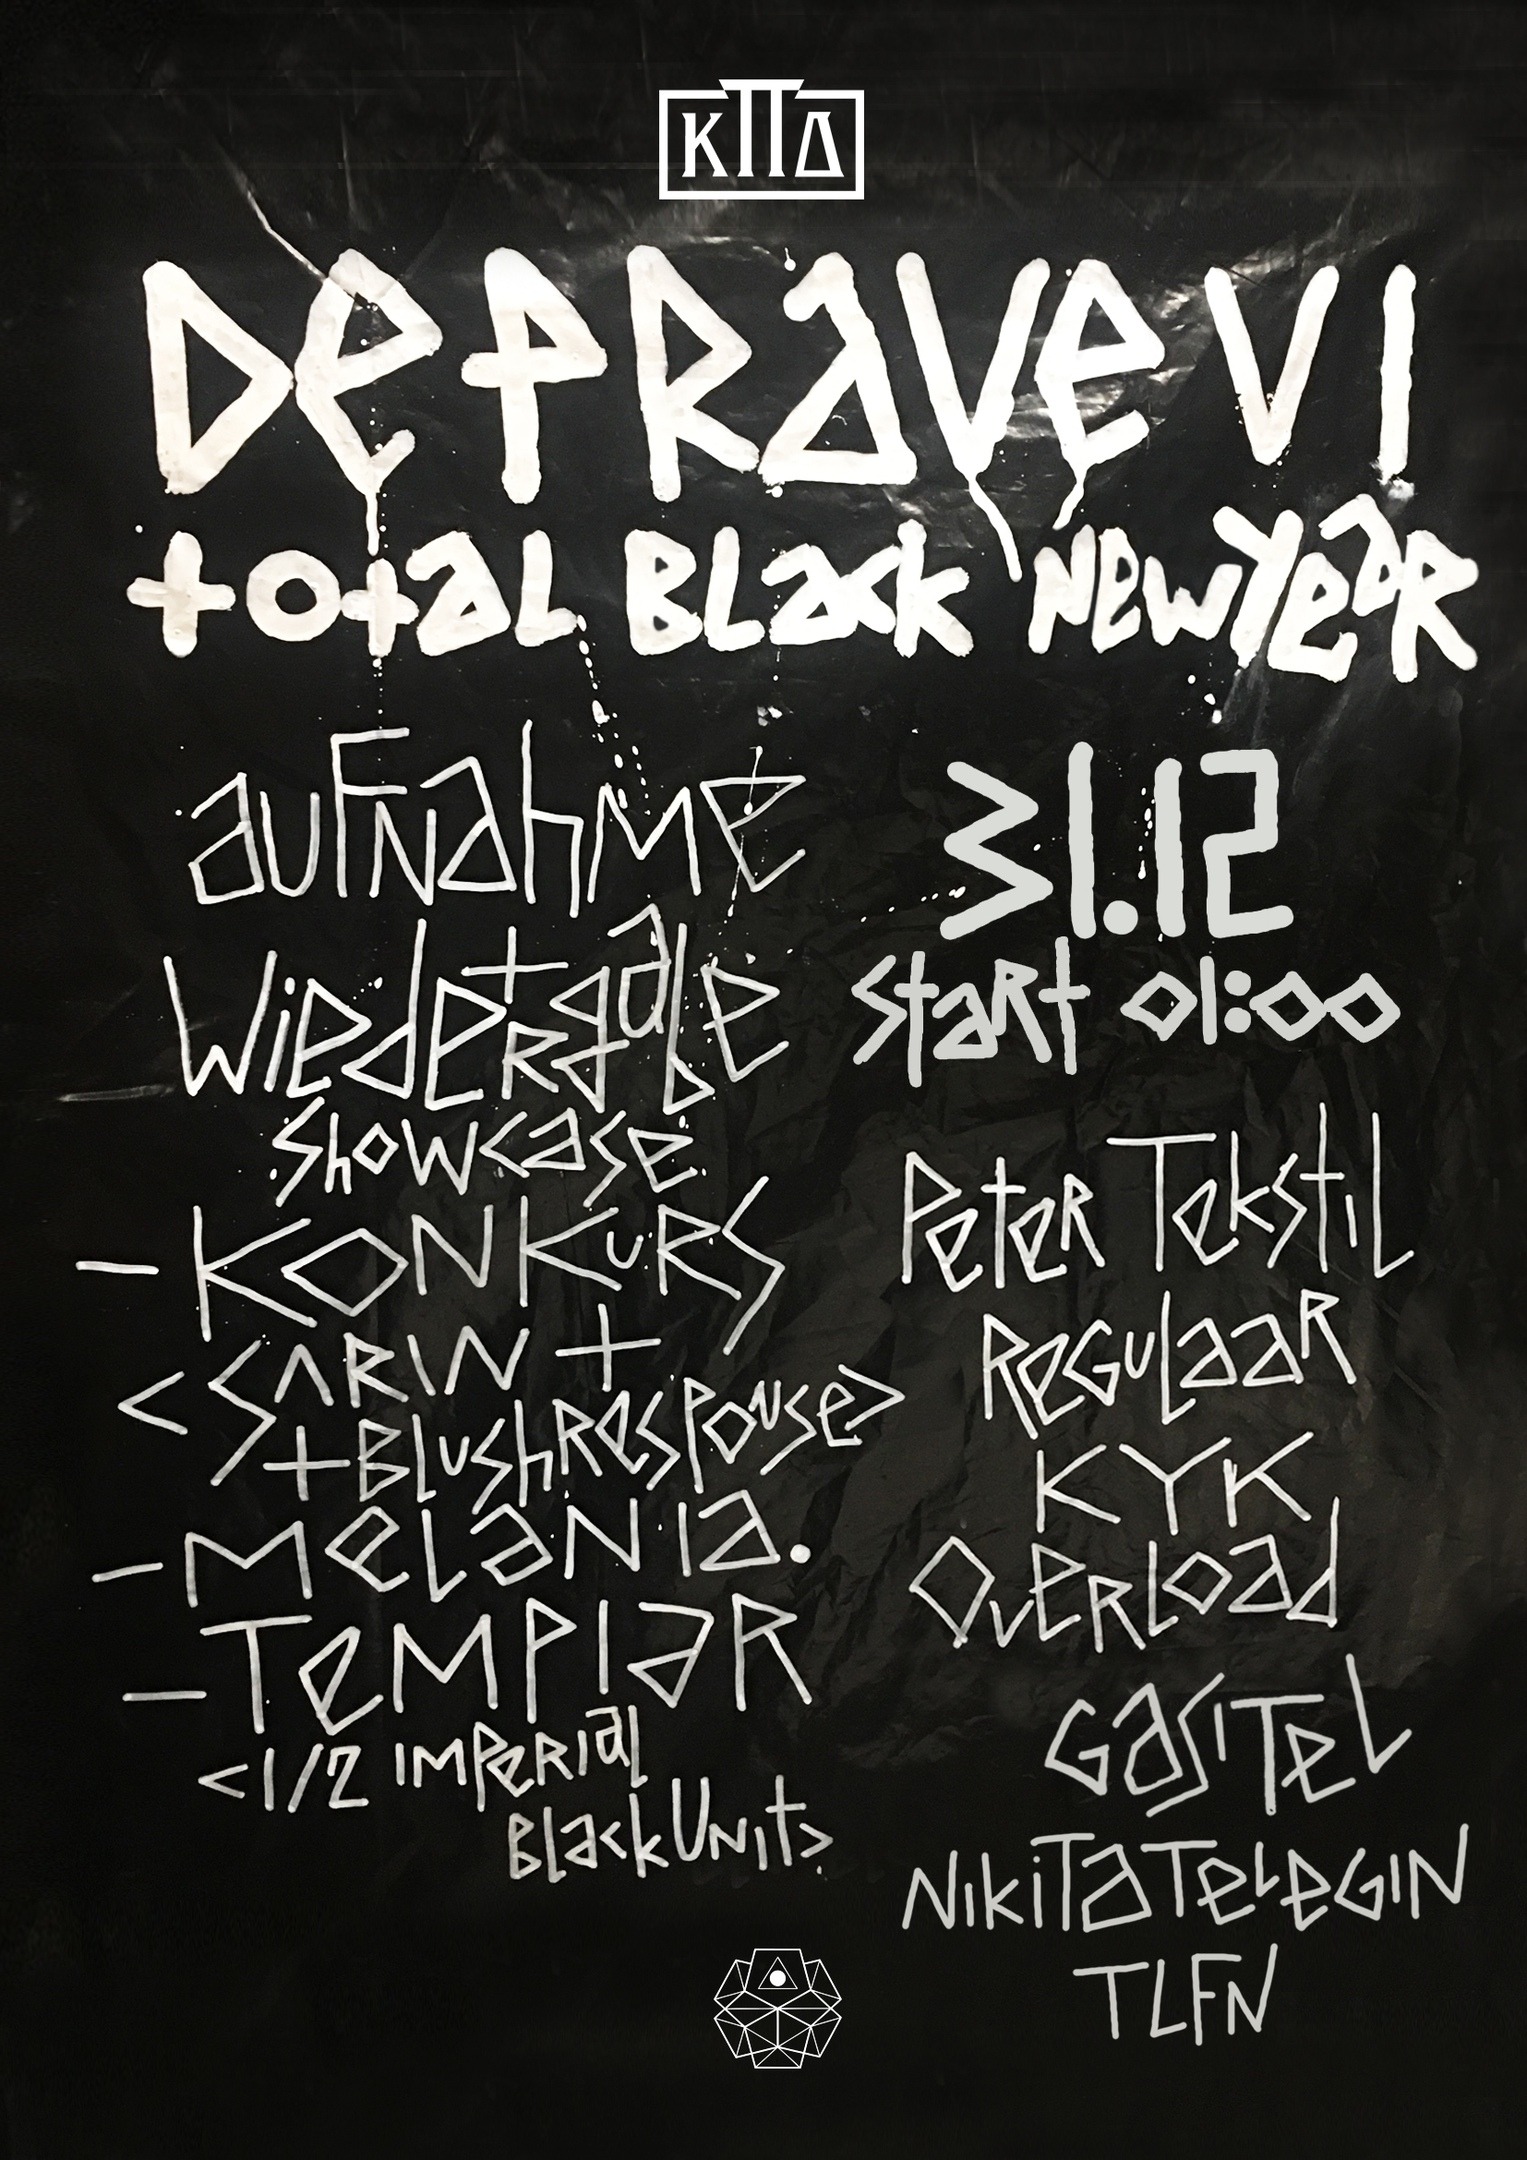 КПД
DEPRAVE VI
total Black NewYear
aufnahme
wiedergabe
showcase
– KONKURS
<SARIN +
+ BlushResponse>
– MELANIA.
– TEMPLAR
<1/2 IMPERIAL
Black Unit>
31.12
start 01:00
Peter Tekstil
Regulaar
KYK
Overload
Gasitel
Nikita Telegin
TLFN